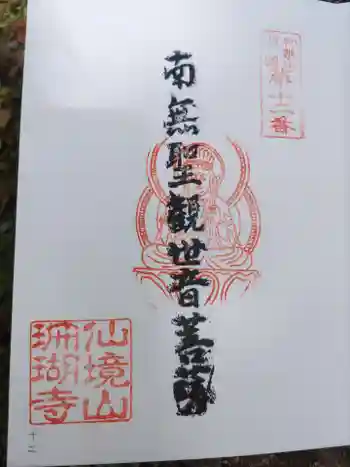 十二番
南無聖観世音菩薩
仙境山
珊瑚寺
十二